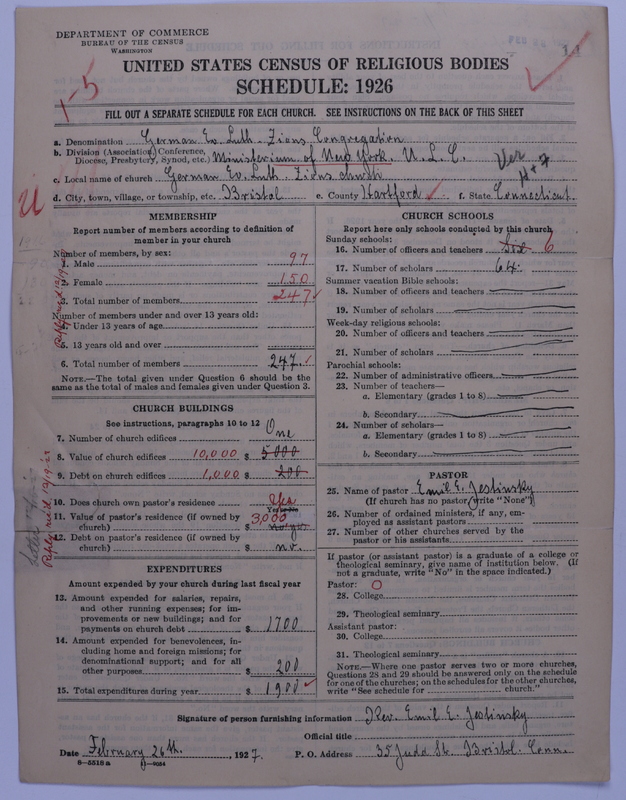 DEPARTMENT OF COMMERCE
BUREAU OF THE CENSUS
WASHINGTON
11
1-5
UNITED STATES CENSUS OF RELIGIOUS BODIES
SCHEDULE: 1926
FILL OUT A SEPARATE SCHEDULE FOR EACH CHURCH. SEE INSTRUCTIONS ON THE BACK OF THIS SHEET
a. Denomination German Ev. Luth. Zions Congregation
b. Division (Association, Conference, Diocese, Presbytery, Synod, etc.) Ministerium of New York. U. L. C.
c. Local name of church German Ev. Luth. Zions church
d. City, town, village, or township, etc. Bristol e. County Hartford f. State Connecticut
U
MEMBERSHIP
Report number of members according to definition of
member in your church
Number of members, by sex:
1. Male 97
2. Female 150
3. Total number of members 247
Number of members under and over 13 years old:
4. Under 13 years of age
5. 13 years old and over
6. Total number of members 247
NOTE.—The total given under Question 6 should be
same as the total of males and females given under Question 3.
CHURCH BUILDINGS
See instructions, paragraphs 10 to 12
7. Number of church edifices One
8. Value of church edifices 10,000 $ 5000
9. Debt on church edifices 1,000 $ 200
10. Does church own pastor's residence Yes
Yes or No
11. Value of pastor's residence (if owned by
church) 3,000 $
12. Debt on pastor's residence (if owned by
church) $ no.
EXPENDITURES
Amount expended by your church during last fiscal year
13. Amount expended for salaries, repairs,
and other running expenses; for im-
provements or new buildings; and for
payments on church debt $ 1700
14. Amount expended for benevolences, in-
cluding home and foreign missions; for
denominational support; and for all
other purposes $ 200
15. Total expenditures during year $ 1900
CHURCH SCHOOLS
Report here only schools conducted by this church
Sunday schools:
16. Number of officers and teachers Six 6
17. Number of scholars 64.
Summer vacation Bible schools:
18. Number of officers and teachers
19. Number of scholars
Week-day religious schools:
20. Number of officers and teachers
21. Number of scholars
Parochial schools:
22. Number of administrative officers
23. Number of teachers—
a. Elementary (grades 1 to 8)
b. Secondary
24. Number of scholars—
a. Elementary (grades 1 to 8)
b. Secondary
PASTOR
25. Name of pastor Emil E. Jestinsky
(If church has no pastor, write "None")
26. Number of ordained ministers, if any, em-
ployed as assistant pastors
27. Number of other churches served by the
pastor or his assistants
If pastor (or assistant pastor) is a graduate of a college or
theological seminary, give name of institution below. (If
not a graduate, write "No" in the space indicated.)
Pastor: O
28. College
29. Theological seminary
Assistant pastor:
30. College
31. Theological seminary
NOTE.—Where one pastor serves two or more churches,
Questions 28 and 29 should be answered only on the schedule
for one of the churches; on the schedules for the other churches,
write "See schedule for church."
Signature of person furnishing information Rev. Emil E. Jestinsky
Official title
Date February 26th., 1927. P. O. Address 35 Judd St. Bristol. Conn.
8—5518a